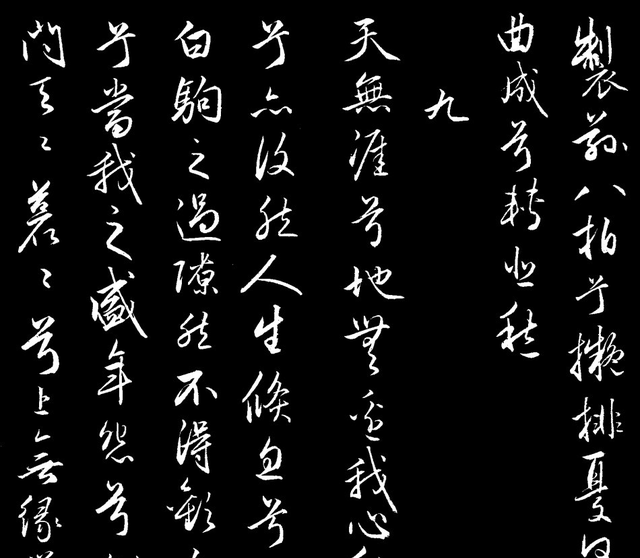 製茲八拍兮擬排憂何
曲成兮轉悲愁
九
天無涯兮地無邊我心
兮亦復然人生倏忽兮
白駒之過隙然不得歡
兮當我之盛年怨兮
問天〻蒼〻兮上無緣